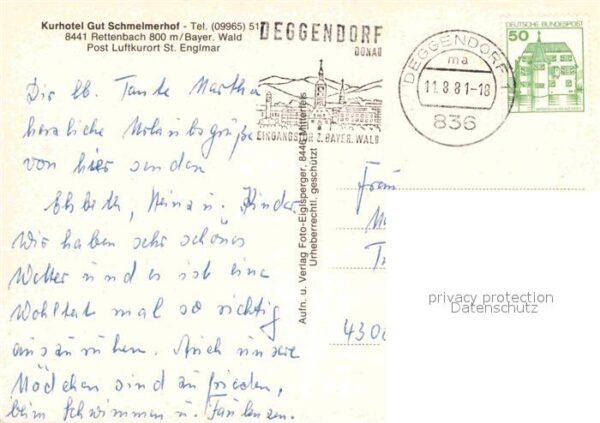 Kurhotel Gut Schmelmerhof - Tel. (09965) 517
8441 Rettenbach 800 m/Bayer. Wald
Post Luftkurort St. Englmar
Dir lb. Tante Martha
herzliche Urlaubsgrüße
von hier senden
Elsbeth, Heinz u. Kinder.
Wir haben sehr schönes
Wetter und es ist eine
Wohltat mal so richtig
auszuruhen. Auch unsere
Mädchen sind zufrieden,
beim Schwimmen u. Faulenzen.
Aufn. u. Verlag Foto-Eiglsperger, 8446 Mitterfels
Urheberrechtl. geschützt
DEGGENDORF
DONAU
EINGANGSTOR Z. BAYER. WALD
DEGGENDORF 1
ma
11.8.81-18
836
DEUTSCHE BUNDESPOST
50
Frau
4300
privacy protection
Datenschutz